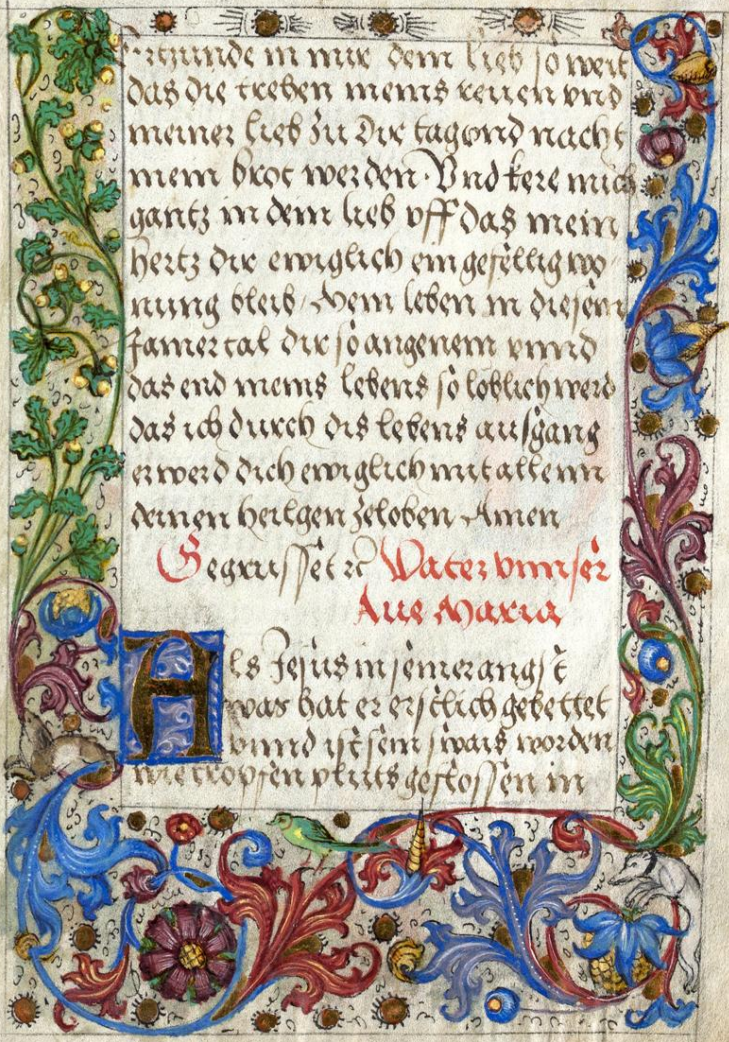 Entzunde in mir dein lieb so weit
das die trehen meins reuen vnd
meiner lieb zu dir tag ond nacht
mein brot werden · Vnd kere mich
gantz in dein lieb vff das mein
hertz dir ewiglich ein gefellig wo
nung bleib / Mein leben in diesem
Jamertal dir so angenem vnnd
das end meins lebens so loblich werd
das ich durch dis lebens ausgang
erwerd dich ewiglich mit allenn
deinen heilgen zeloben Amen
Gegrusset ꝛc Vater vnnser
Aue Maria
Als Jesus in seiner angst
was hat er erstlich gebettet
vnnd ist sein swais worden
wie tropfen pluts geflossen in